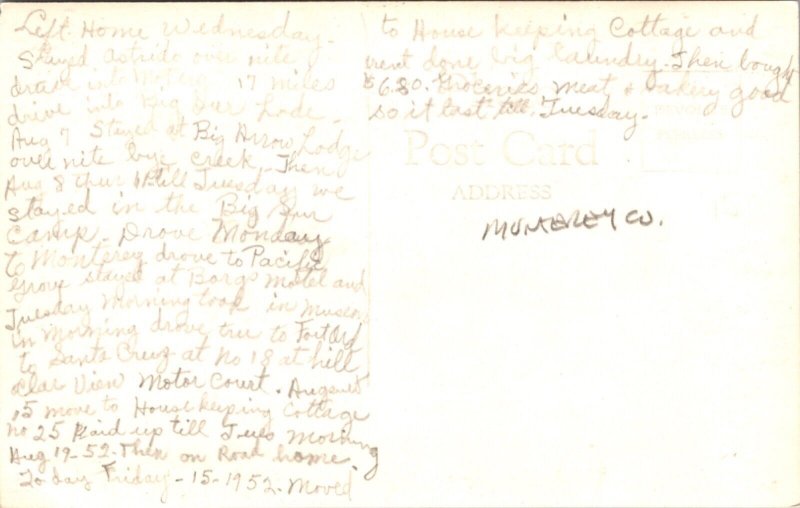 Left Home Wednesday.
Stayed over nite
drove into 17 miles
drive into Big Sur Lode.
Aug 7 Stayed at Big Arrow Lodge
over nite bye Creek. Then
Aug 8 thur till Tuesday we
stayed in the Big Sur
Camp. Drove Monday
to Monterey drove to Pacific
Grove stayed at Borgs Motel and
Tuesday Morning took in Museum
in Morning drove tru to Fort Ord
to Santa Cruz at No 18 at hill
View Motor Court. Augeust
15 move to House keeping Cottage
No 25 Paid up till Tues Morning
Aug 19-52. Then on Road home.
To day Friday - 15 - 1952. Moved
to House keeping Cottage and
went done big laundry. Then bought
$6.80. Groceries meat & bakery good
so it last till Tuesday.
Post Card
ADDRESS
MONTEREY CO.